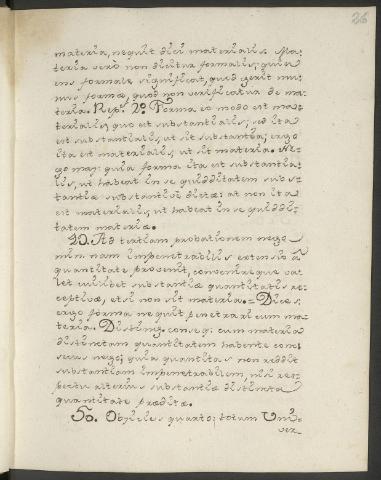 26
materia, nequit dici materialis. Ma-
teria verò non dicitur formalis; quia
ens formale significat, quod gerit mu-
nus formæ, quod non verificatur de ma-
teria. Resp. 2.o Forma eo modo est ma-
terialis, quo est substantialis; sed ita
est substantialis, ut sit substantia; ergo
ita est materialis, ut sit materia. Ne-
go maj: quia forma ita est substantia-
lis, ut habeat in se quidditatem subs-
tantiæ substantivè dictæ: at non ita
est materialis, ut habeat in se quiddi-
tatem materiæ.
49. Ad tertiam probationem nego
min. nam impenetrabilis extensio à
quantitate provenit, convenireque va-
let cuilibet substantiæ quantitatis re-
ceptivæ, etsi non sit materia. = Dices:
ergo forma nequit penetrari cum ma-
teria. Disting. conseq: cum materia
distinctam quantitatem habente conc:
secus nego; quia quantitas non reddit
substantiam impenetrabilem, nisi res-
pectu alterius substantiæ distincta
quantitate præditæ.
50. Objicies quarto: totum Uni-
ver-